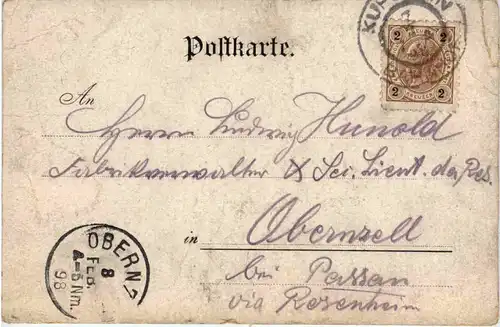 Postkarte.
KUFSTEIN
2 2
KREUZER
2 2
An
Herrn Ludwig Hunold
Fabrikverwalter & Sei. Lieut. der Res.
in Obernzell
bei Passau
via Rosenheim
OBERNZ
8
FEB.
4-5 Nm.
98